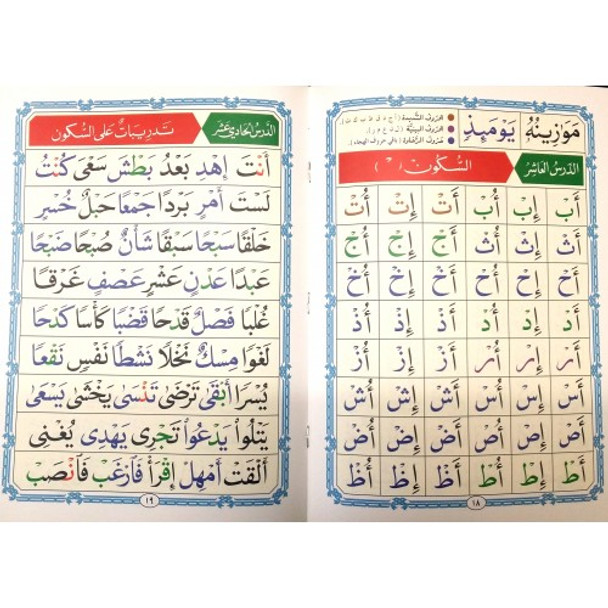 مَوَٰزِينُهُۥ يَوْمَئِذٍ
حروف الشدة (أ ج د ق ط ب ك ت).
الحروف البينية (ل ن ع م ر).
حروف الرخاوة (باقي حروف الهجاء).
الدَّرْسُ العَاشِرُ السُّكُونُ ( ْ )
أَبْ إِبْ أُبْ أَتْ إِتْ أُتْ
أَثْ إِثْ أُثْ أَجْ إِجْ أُجْ
أَحْ إِحْ أُحْ أَخْ إِخْ أُخْ
أَدْ إِدْ أُدْ أَذْ إِذْ أُذْ
أَرْ إِرْ أُرْ أَزْ إِزْ أُزْ
أَسْ إِسْ أُسْ أَشْ إِشْ أُشْ
أَصْ إِصْ أُصْ أَضْ إِضْ أُضْ
أَطْ إِطْ أُطْ أَظْ إِظْ أُظْ
١٨
الدَّرْسُ الحَادِيَ عَشَرَ تَدْرِيبَاتٌ عَلَى السُّكُون
أَنْتَ اِهْدِ بَعْدُ بَطْشَ سَعْىَ كُنْتُ
لَسْتَ أَمْرٍ بَرْدًا جَمْعًا حَبْلٌ خُسْرٍ
خَلْقًا سَبْحًا سَبْقًا شَأْنٌ صُبْحًا ضَبْحًا
عَبْدًا عَدْنٍ عَشْرٍ عَصْفٍ غَرْقًا
غُلْبًا فَصْلٌ قَدْحًا قَضْبًا كَأْسًا كَدْحًا
لَغْوًا مِسْكٌ نَخْلًا نَشْطًا نَفْسٍ نَقْعًا
يُسْرًا أَبْقَىٰ تَرْضَىٰ تَنْسَىٰ يَخْشَىٰ يَسْعَىٰ
يَتْلُوا۟ يَدْعُوا۟ تَجْرِى يَهْدِى يُغْنِى
أَلْقَتْ أَمْهِلْ اِقْرَأْ فَٱرْغَبْ فَٱنْصَبْ
١٩